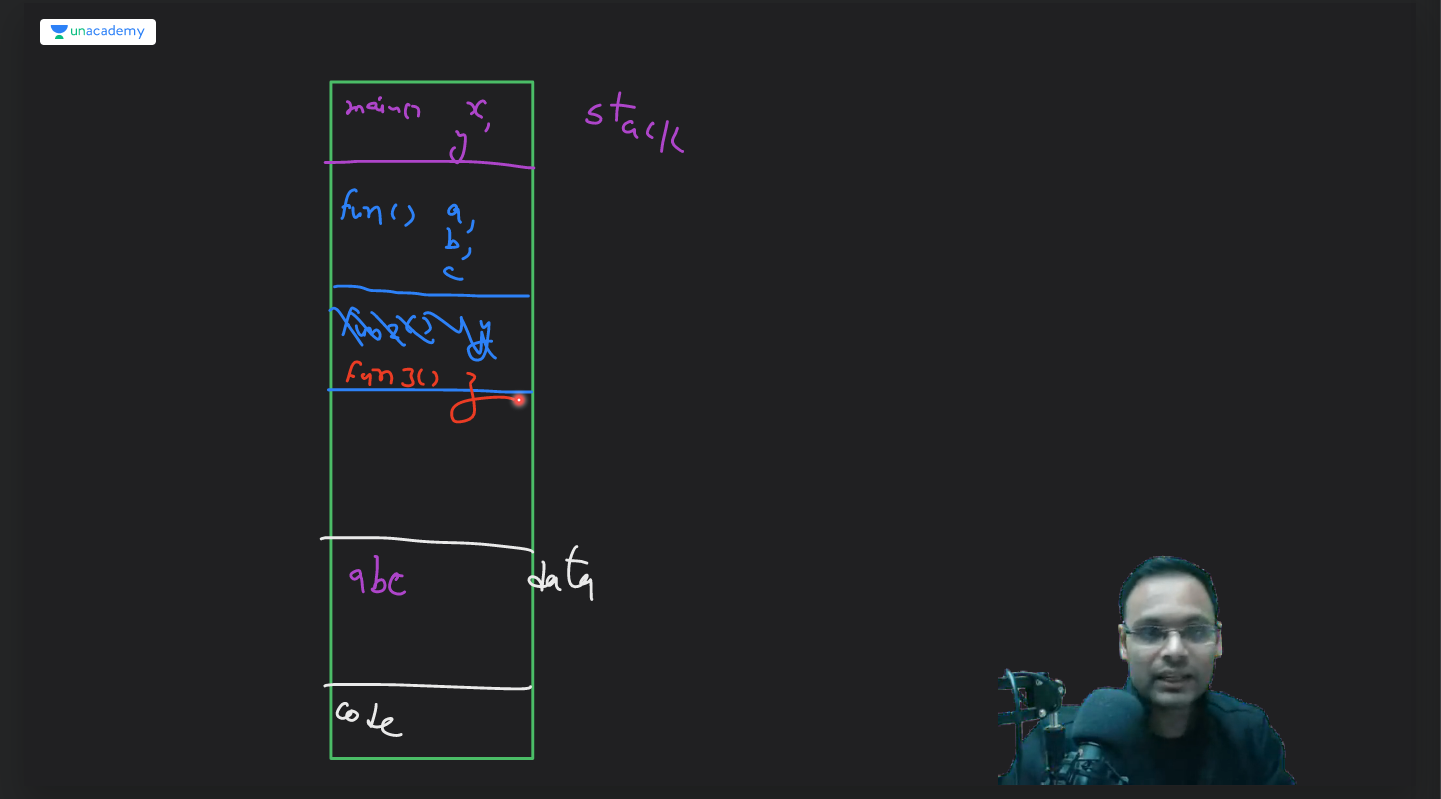 unacademy
main() x,
y
stack
fun() a,
b,
c
fun2() y
fun3() z
abc
data
code